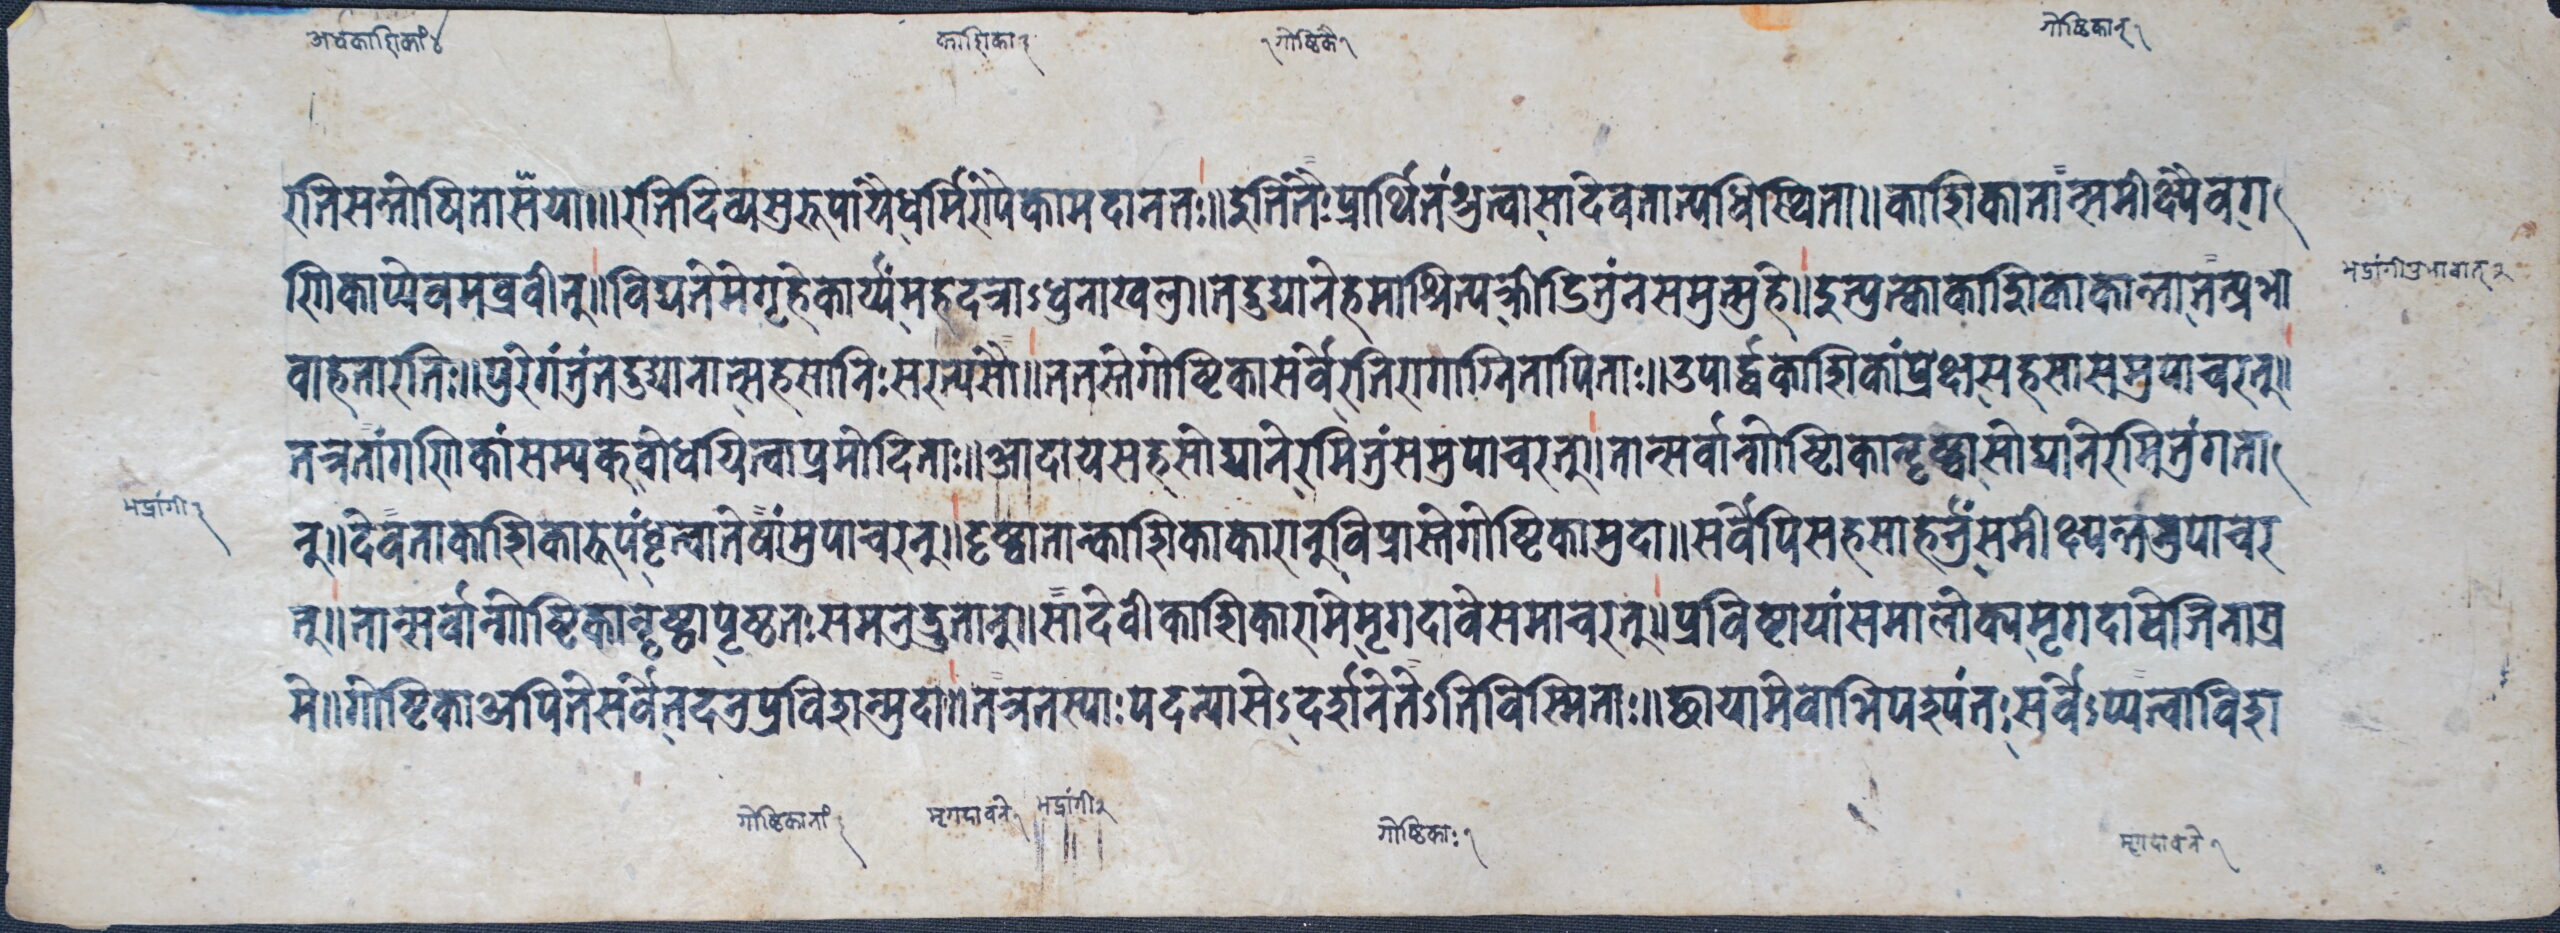 अर्धकाशिकां ४
काशिका ३
१ गोष्ठिकै १
गोष्ठिकान् १
रतिसन्तोषितासंया॥॥रतिदिव्यसुरूपांयेधर्मिरोपेकामदानतः॥इतितैःप्रार्थितंश्रुत्वासादेवतान्यधिस्थिता॥काशिकातान्समीक्ष्यैवग
णिकाप्येवमब्रवीत्॥विद्यतेमेगृहेकार्य्यंमहदत्राऽधुनाखलु॥तदुद्यानेहमाश्रित्यक्रीडितुंनसमुत्सहे॥इत्युक्त्वाकाशिकाकान्तातत्प्रभा
वाहतारतिः॥पुरेगंतुंतदुद्यानात्सहसानिःसरत्यसौ॥ततस्तेगोष्टिकासर्वेरतिरागाग्नितापिताः॥उपार्द्धकाशिकांप्रेक्ष्यसहसासमुपाचरत्॥
तत्रतांगणिकांसम्यक्बोधयित्वाप्रमोदिताः॥आदायसहसोद्यानेरमितुंसमुपाचरत्॥तान्सर्वान्गोष्टिकान्दृष्ट्वासोद्यानेरमितुंगता
न्॥देवताकाशिकारूपंधृत्वातेषांमुपाचरत्॥दृष्ट्वातान्काशिकाकारान्विप्रास्तेगोष्टिकामुदा॥सर्वेपिसहसाहर्तुंसमीक्ष्यन्तमुपाचर
त्॥तान्सर्वान्गोष्टिकान्दृष्ट्वापृष्ठतःसमनुद्रुतान्॥सादेवीकाशिकारामेमृगदावेसमाचरत्॥प्रविष्टायांसमालोक्यमृगदावेजिनाश्र
मे॥गोष्टिकाअपितेसर्वेतदनुप्रविशन्मुदा॥तत्रतस्याःपदन्यासेऽदर्शनेतेऽतिविस्मिताः॥छायामेवोभिपश्यंतःसर्वेऽप्यत्वाविशा
भद्रांगीप्रभावात् २
भद्रांगी ३
गोष्ठिकानां ३
मृगदावने १
भद्रांगी २
गोष्ठिकाः १
मृगदावने १